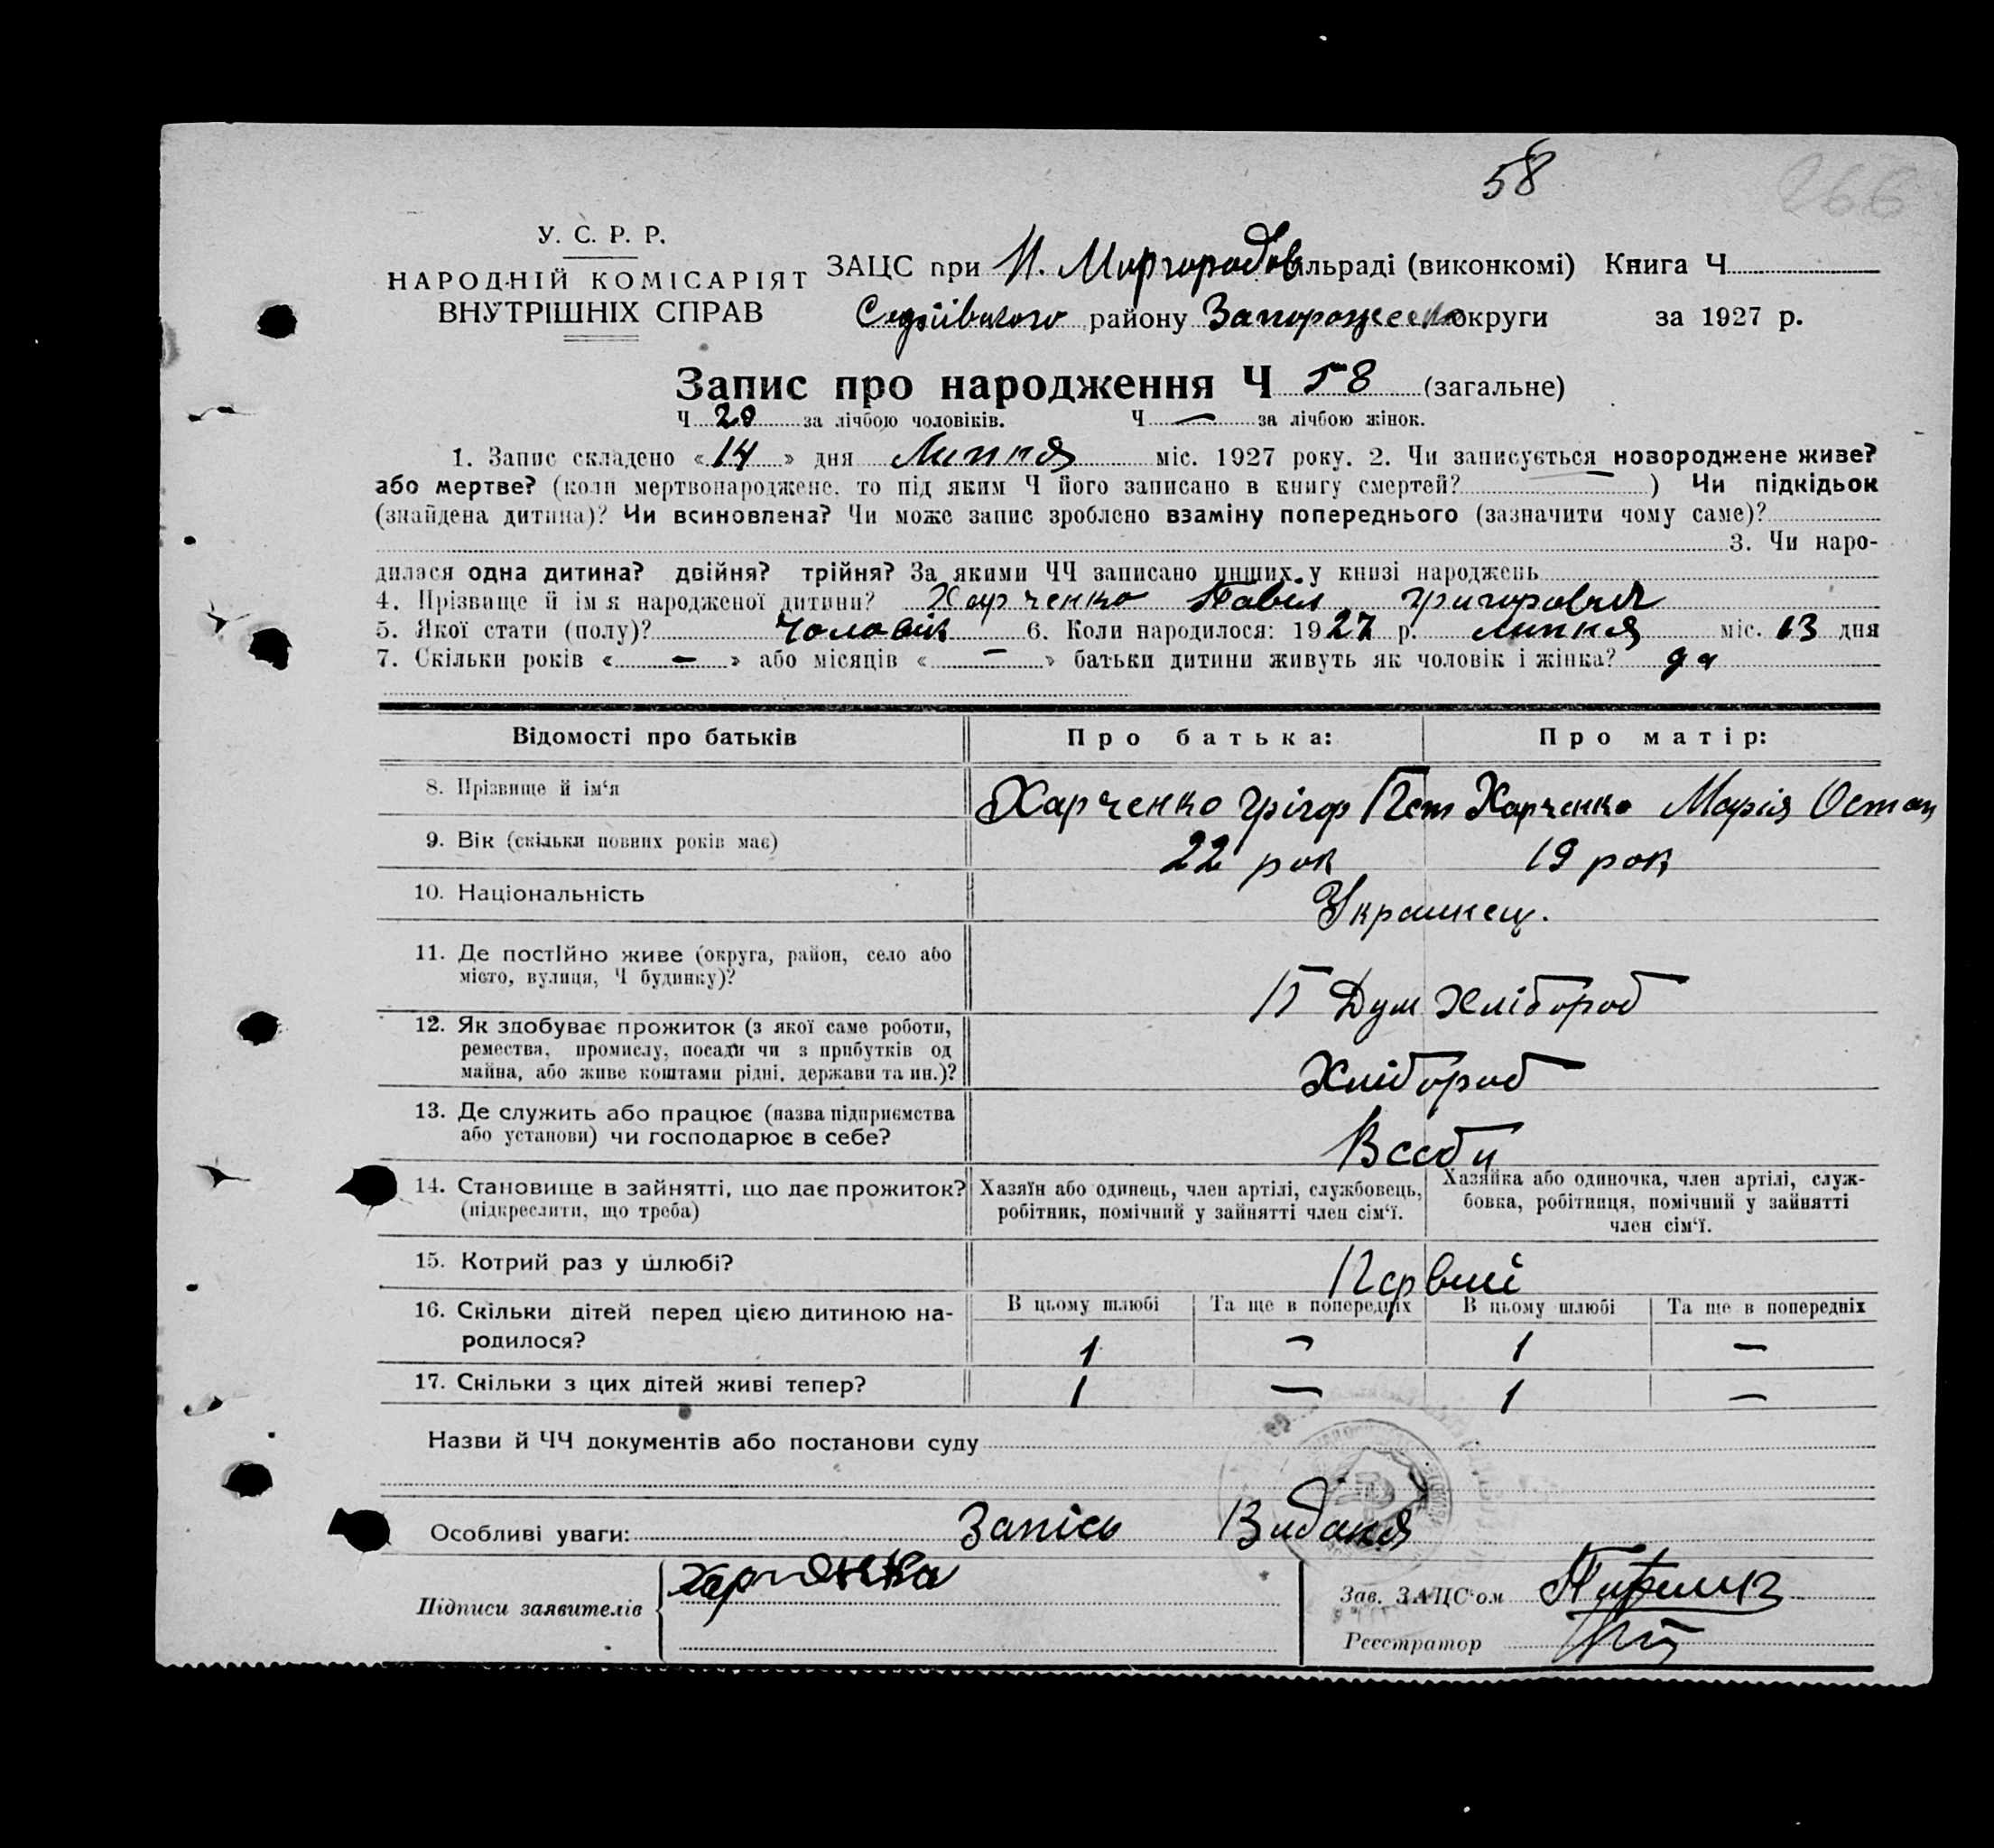 58
266
У. С. Р. Р.
НАРОДНІЙ КОМІСАРІЯТ
ВНУТРІШНІХ СПРАВ
ЗАЦС при Н. Миргородов ільраді (виконкомі) Книга Ч
району Запорожско округи за 1927 р.
Запис про народження Ч 58 (загальне)
Ч 20 за лічбою чоловіків. Ч — за лічбою жінок.
1. Запис складено «14» дня Липня міс. 1927 року. 2. Чи записується новороджене живе?
або мертве? (коли мертвонароджене, то під яким Ч його записано в книгу смертей? ) Чи підкідьок
(знайдена дитина)? Чи всиновлена? Чи може запис зроблено взаміну попереднього (зазначити чому саме)?
3. Чи наро-
дилася одна дитина? двійня? трійня? За якими ЧЧ записано инших у книзі народжень
4. Прізвище й ім я народженої дитини? Харченко Павіл Григорович
5. Якої стати (полу)? Чоловік 6. Коли народилося: 1927 р. липня міс. 13 дня
7. Скільки років « — » або місяців « — » батьки дитини живуть як чоловік і жінка? да
Відомості про батьків Про батька: Про матір:
8. Прізвище й ім‘я Харченко Грігор Пет Харченко Марія Остап
9. Вік (скільки повних років має) 22 рок 19 рок
10. Національність Украинец.
11. Де постійно живе (округа, район, село або
місто, вулиця, Ч будинку)? Хлібороб
12. Як здобуває прожиток (з якої саме роботи,
ремества, промислу, посади чи з прибутків од
майна, або живе коштами рідні, держави та ин.)? Хлібороб
13. Де служить або працює (назва підприємства
або установи) чи господарює в себе? В себи
14. Становище в зайнятті, що дає прожиток?
(підкреслити, що треба)
Хазяїн або одинець, член артілі, службовець,
робітник, помічний у зайнятті член сім‘ї.
Хазяйка або одиночка, член артілі, служ-
бовка, робітниця, помічний у зайнятті
член сім‘ї.
15. Котрий раз у шлюбі? Первий
16. Скільки дітей перед цією дитиною на-
родилося?
В цьому шлюбі Та ще в попередніх В цьому шлюбі Та ще в попередніх
1 — 1 —
17. Скільки з цих дітей живі тепер? 1 — 1 —
Назви й ЧЧ документів або постанови суду
Особливі уваги: Запісь Видания
Підписи заявителів
Зав. ЗАЦС‘ом
Реєстратор